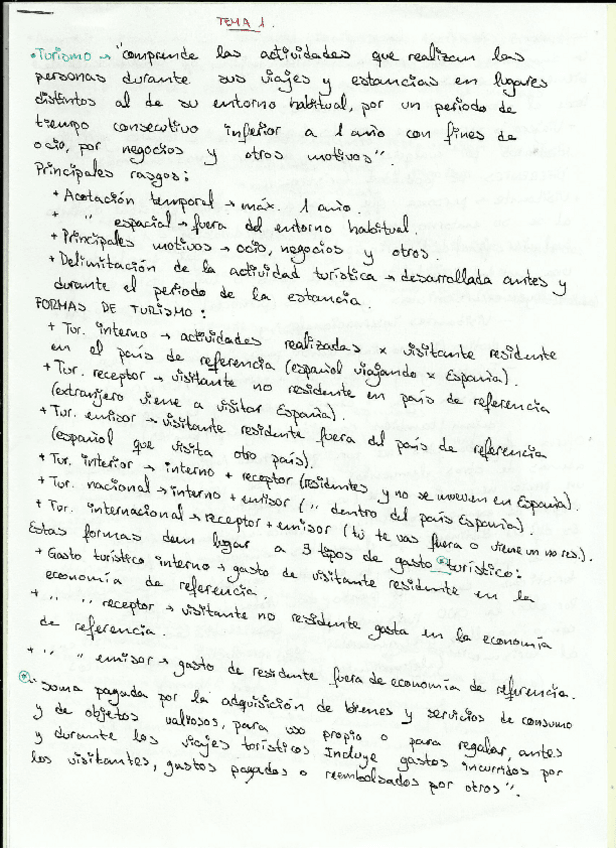 TEMA 1.
• Turismo → "comprende las actividades que realizan las
personas durante sus viajes y estancias en lugares
distintos al de su entorno habitual, por un periodo de
tiempo consecutivo inferior a 1 año con fines de
ocio, por negocios y otros motivos".
Principales rasgos:
+ Acotación temporal → máx. 1 año.
+ " espacial → fuera del entorno habitual.
+ Principales motivos → ocio, negocios y otros.
+ Delimitación de la actividad turística → desarrollada antes y
durante el periodo de la estancia.
FORMAS DE TURISMO:
+ Tur. interno → actividades realizadas x visitante residente
en el país de referencia (español viajando x España).
+ Tur. receptor → visitante no residente en país de referencia
(extranjero viene a visitar España).
+ Tur. emisor → visitante residente fuera del país de referencia
(español que visita otro país).
+ Tur. interior → interno + receptor (residentes y no se mueven en España).
+ Tur. nacional → interno + emisor (" dentro del país España).
+ Tur. internacional → receptor + emisor (tú te vas fuera o viene un no res.).
Estas formas dan lugar a 3 tipos de gasto * turístico:
+ Gasto turístico interno → gasto de visitante residente en la
economía de referencia.
+ " " receptor → visitante no residente gasta en la economía
de referencia.
+ " " emisor → gasto de residente fuera de economía de referencia.
* "Suma pagada por la adquisición de bienes y servicios de consumo
y de objetos valiosos, para uso propio o para regalar, antes
y durante los viajes turísticos Incluye gastos incurridos por
los visitantes, gastos pagados o reembolsados por otros".